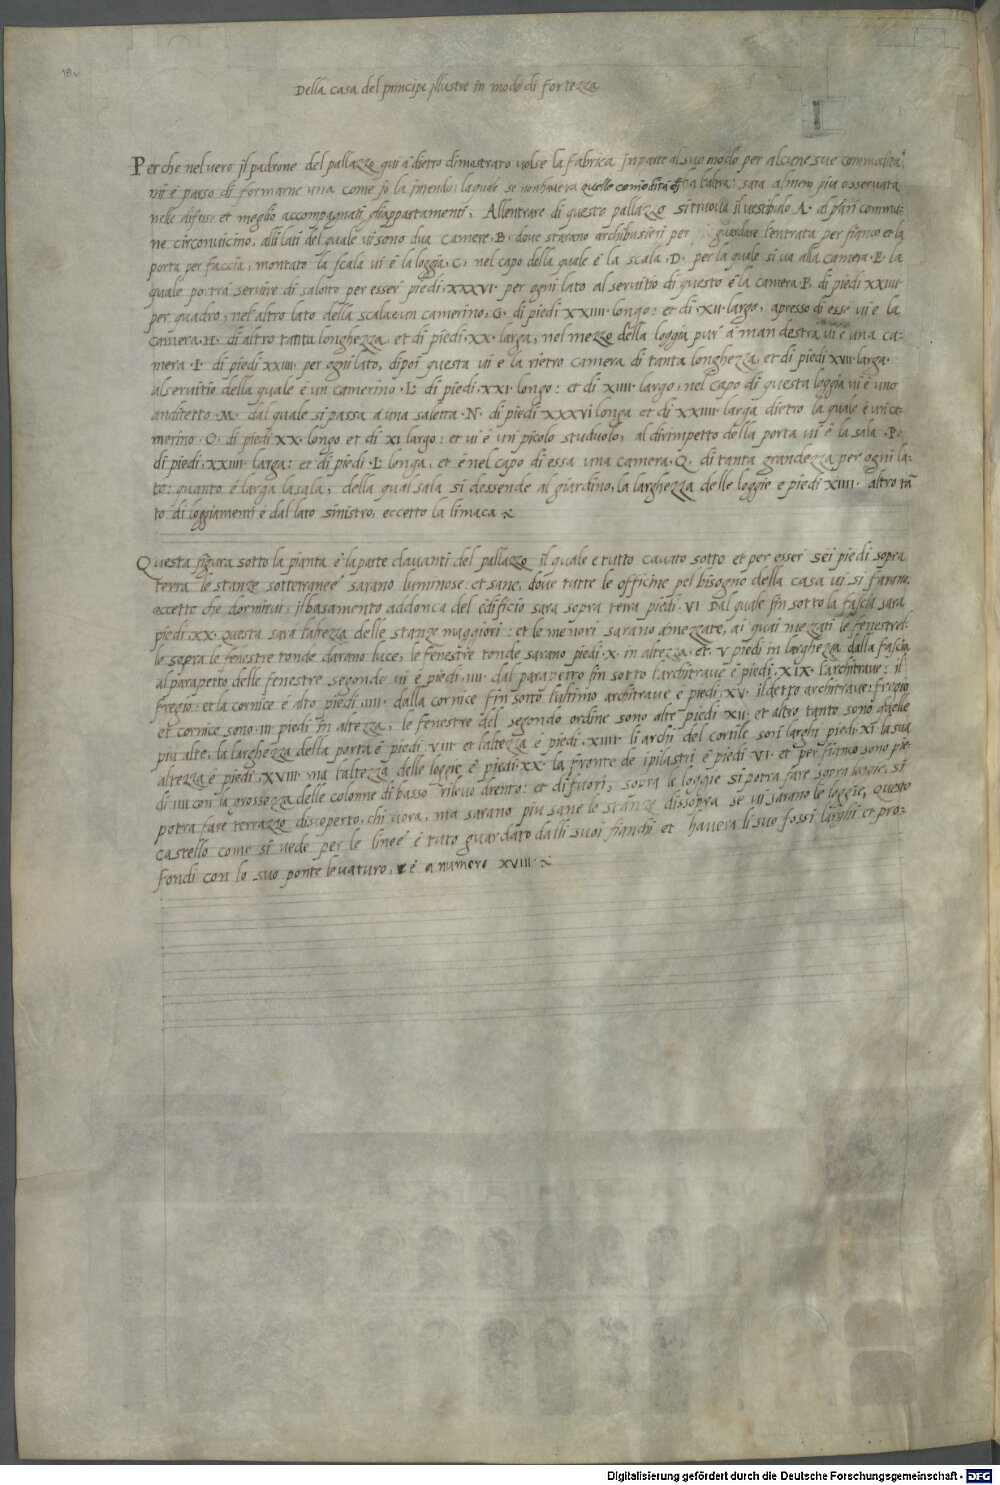 Della casa del principe illustre in modo di fortezza
Perche nel vero il padrone del pallazzo qui a dietro dimostrato volse la fabrica in parte al suo modo per alcune sue commodita
mi è parso di formarne una come io la intendo: la quale se non havera quelle comodità ch'ha l'altra: sara almeno piu osservata
nelle diffese et meglio accompagnati gli appartamenti, Allentrare di questo pallazzo si truova il vestibulo ·A· al piān commu-
ne circonvicino, alli lati del quale vi sono dua camere ·B· dove starano archibusieri per guardare l'entrata per fianco et la
porta per faccia, montato la scala vi è la loggia ·C· nel capo della quale è la scala ·D· per la quale si va alla camera ·E· la
quale potrà servire di salotto per esser piedi ·XXXVI· per ogni lato al servitio di questo è la camera ·F· di piedi XXIIII·
per quadro, nel altro lato della scala è un camerino, G, di piedi XXIIII· longo: et di ·XII· largo, apresso di esse vi è la
camera ·H· di altro tanta longhezza, et di piedi ·XX· larga, nel mezzo della loggia pur à man destra vi è una ca-
mera ·I· di piedi XXIIII· per ogni lato, dipoi questa vi è la rietro camera di tanta longhezza, et di piedi XVII larga·
al servitio della quale è un camerino ·L· di piedi ·XXI· longo: et di XIIII· largo, nel capo di questa loggia vi è uno
anditetto ·M· dal quale si passa a una saletta ·N· di piedi XXXVI longa et di XXIIII larga dietro la quale è un ca-
merino ·O· di piedi XX· longo et di XI largo: et vi è un picolo studuolo, al dirimpetto della porta vi è la sala ·P·
di piedi, XXIIII· larga: et di piedi ·L· longa, et è nel capo di essa una camera ·Q· di tanta grandezza per ogni la-
to: quanto è larga la sala, della qual sala si dessende al giardino, la larghezza delle loggie e piedi XIIII· altro tā
to di loggiamenti è dal lato sinistro, eccetto la limaca
Questa figura sotto la pianta è la parte davanti del pallazzo il quale e tutto cavato sotto et per esser sei piedi sopra
terra le stanze sotterranee sarano luminose: et sane, dove tutte le officine pel bisogno della casa vi si farano,
eccetto che dormirvi, il basamento addonca del edificio sara sopra terra piedi ·VI· Dal quale fin sotto la fascia sara
piedi, XX· questa sara l'altezza delle stanze maggiori: et le menori sarano amezzate, ai quai mezzati le fenestrel-
le sopra le fenestre tonde darano luce, le fenestre tonde sarano piedi ·X· in altezza ·et· V piedi in larghezza dalla fascia
al parapetto delle fenestre segonde vi è piedi ·IIII· dal parapetto fin sotto l'architrave è piedi ·XIX· l'architrave: il
fregio: et la cornice è alto piedi ·IIII· dalla cornice fin sotto l'ultimo architrave è piedi ·XV· il detto architrave: fregio
et cornice sono ·III· piedi in altezza, le fenestre del segondo ordine sono alte piedi XII· et altro tanto sono quelle
piu alte, la larghezza della porta è piedi VIII· et l'altezza è piedi ·XIIII· li archi del cortile son larghi piedi ·XI· la sua
altezza è piedi, XVIII· ma l'altezza delle loggie è piedi ·XX· la fronte de i pilastri è piedi VI· et per fianco sono pie-
di ·IIII· con la grossezza delle colonne di basso rilievo drento: et di fuori, sopra le loggie si potra fare sopra loggie, si
potra fare terrazzo discoperto, chi vora, ma sarano piu sane le stanze dissopra se vi sarano le loggie, questo
castello come si vede per le linee è tuto guardato dalli suoi fianchi et havera li suo fossi larghi et pro-
fondi con lo suo ponte levaturo, è a numero XVIII·
Digitalisierung gefördert durch die Deutsche Forschungsgemeinschaft - DFG